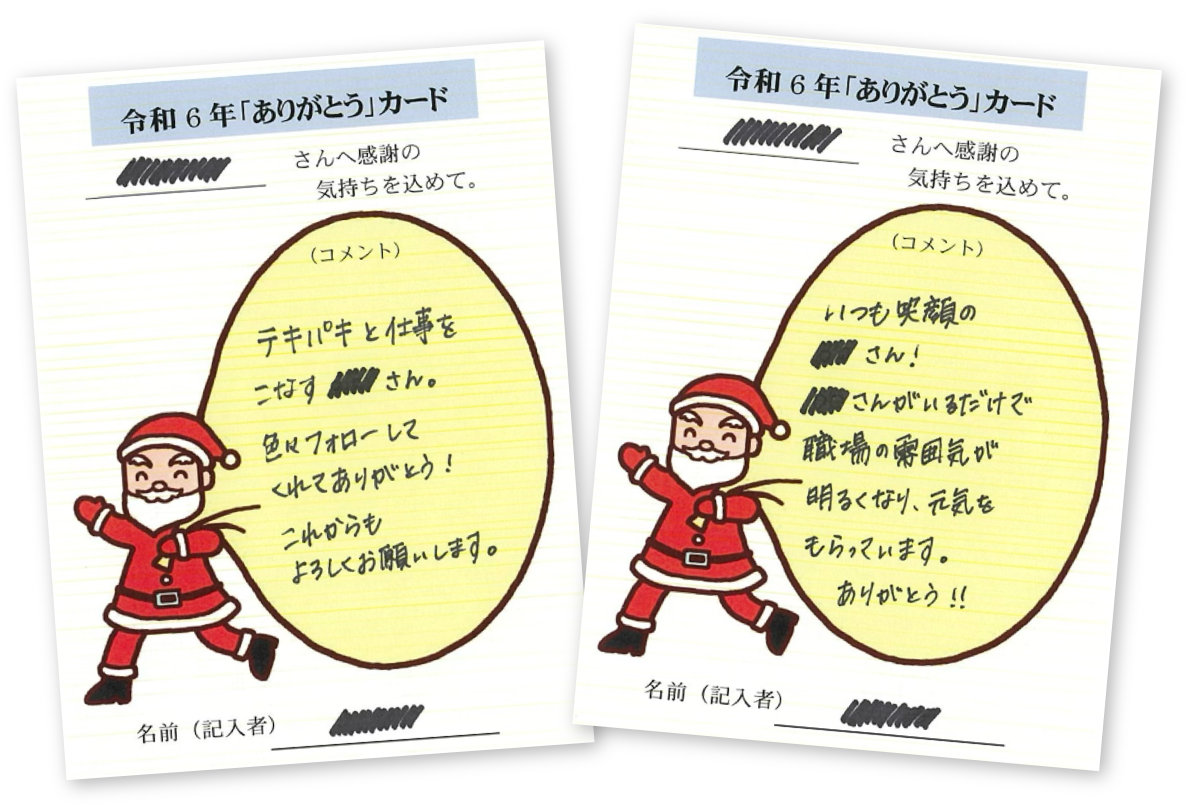 令和6年「ありがとう」カード
さんへ感謝の
気持ちを込めて。
(コメント)
テキパキと仕事を
こなす さん。
色々フォローして
くれてありがとう!
これからも
よろしくお願いします。
名前(記入者)
令和6年「ありがとう」カード
さんへ感謝の
気持ちを込めて。
(コメント)
いつも笑顔の
さん!
さんがいるだけで
職場の雰囲気が
明るくなり、元気を
もらっています。
ありがとう!!
名前(記入者)